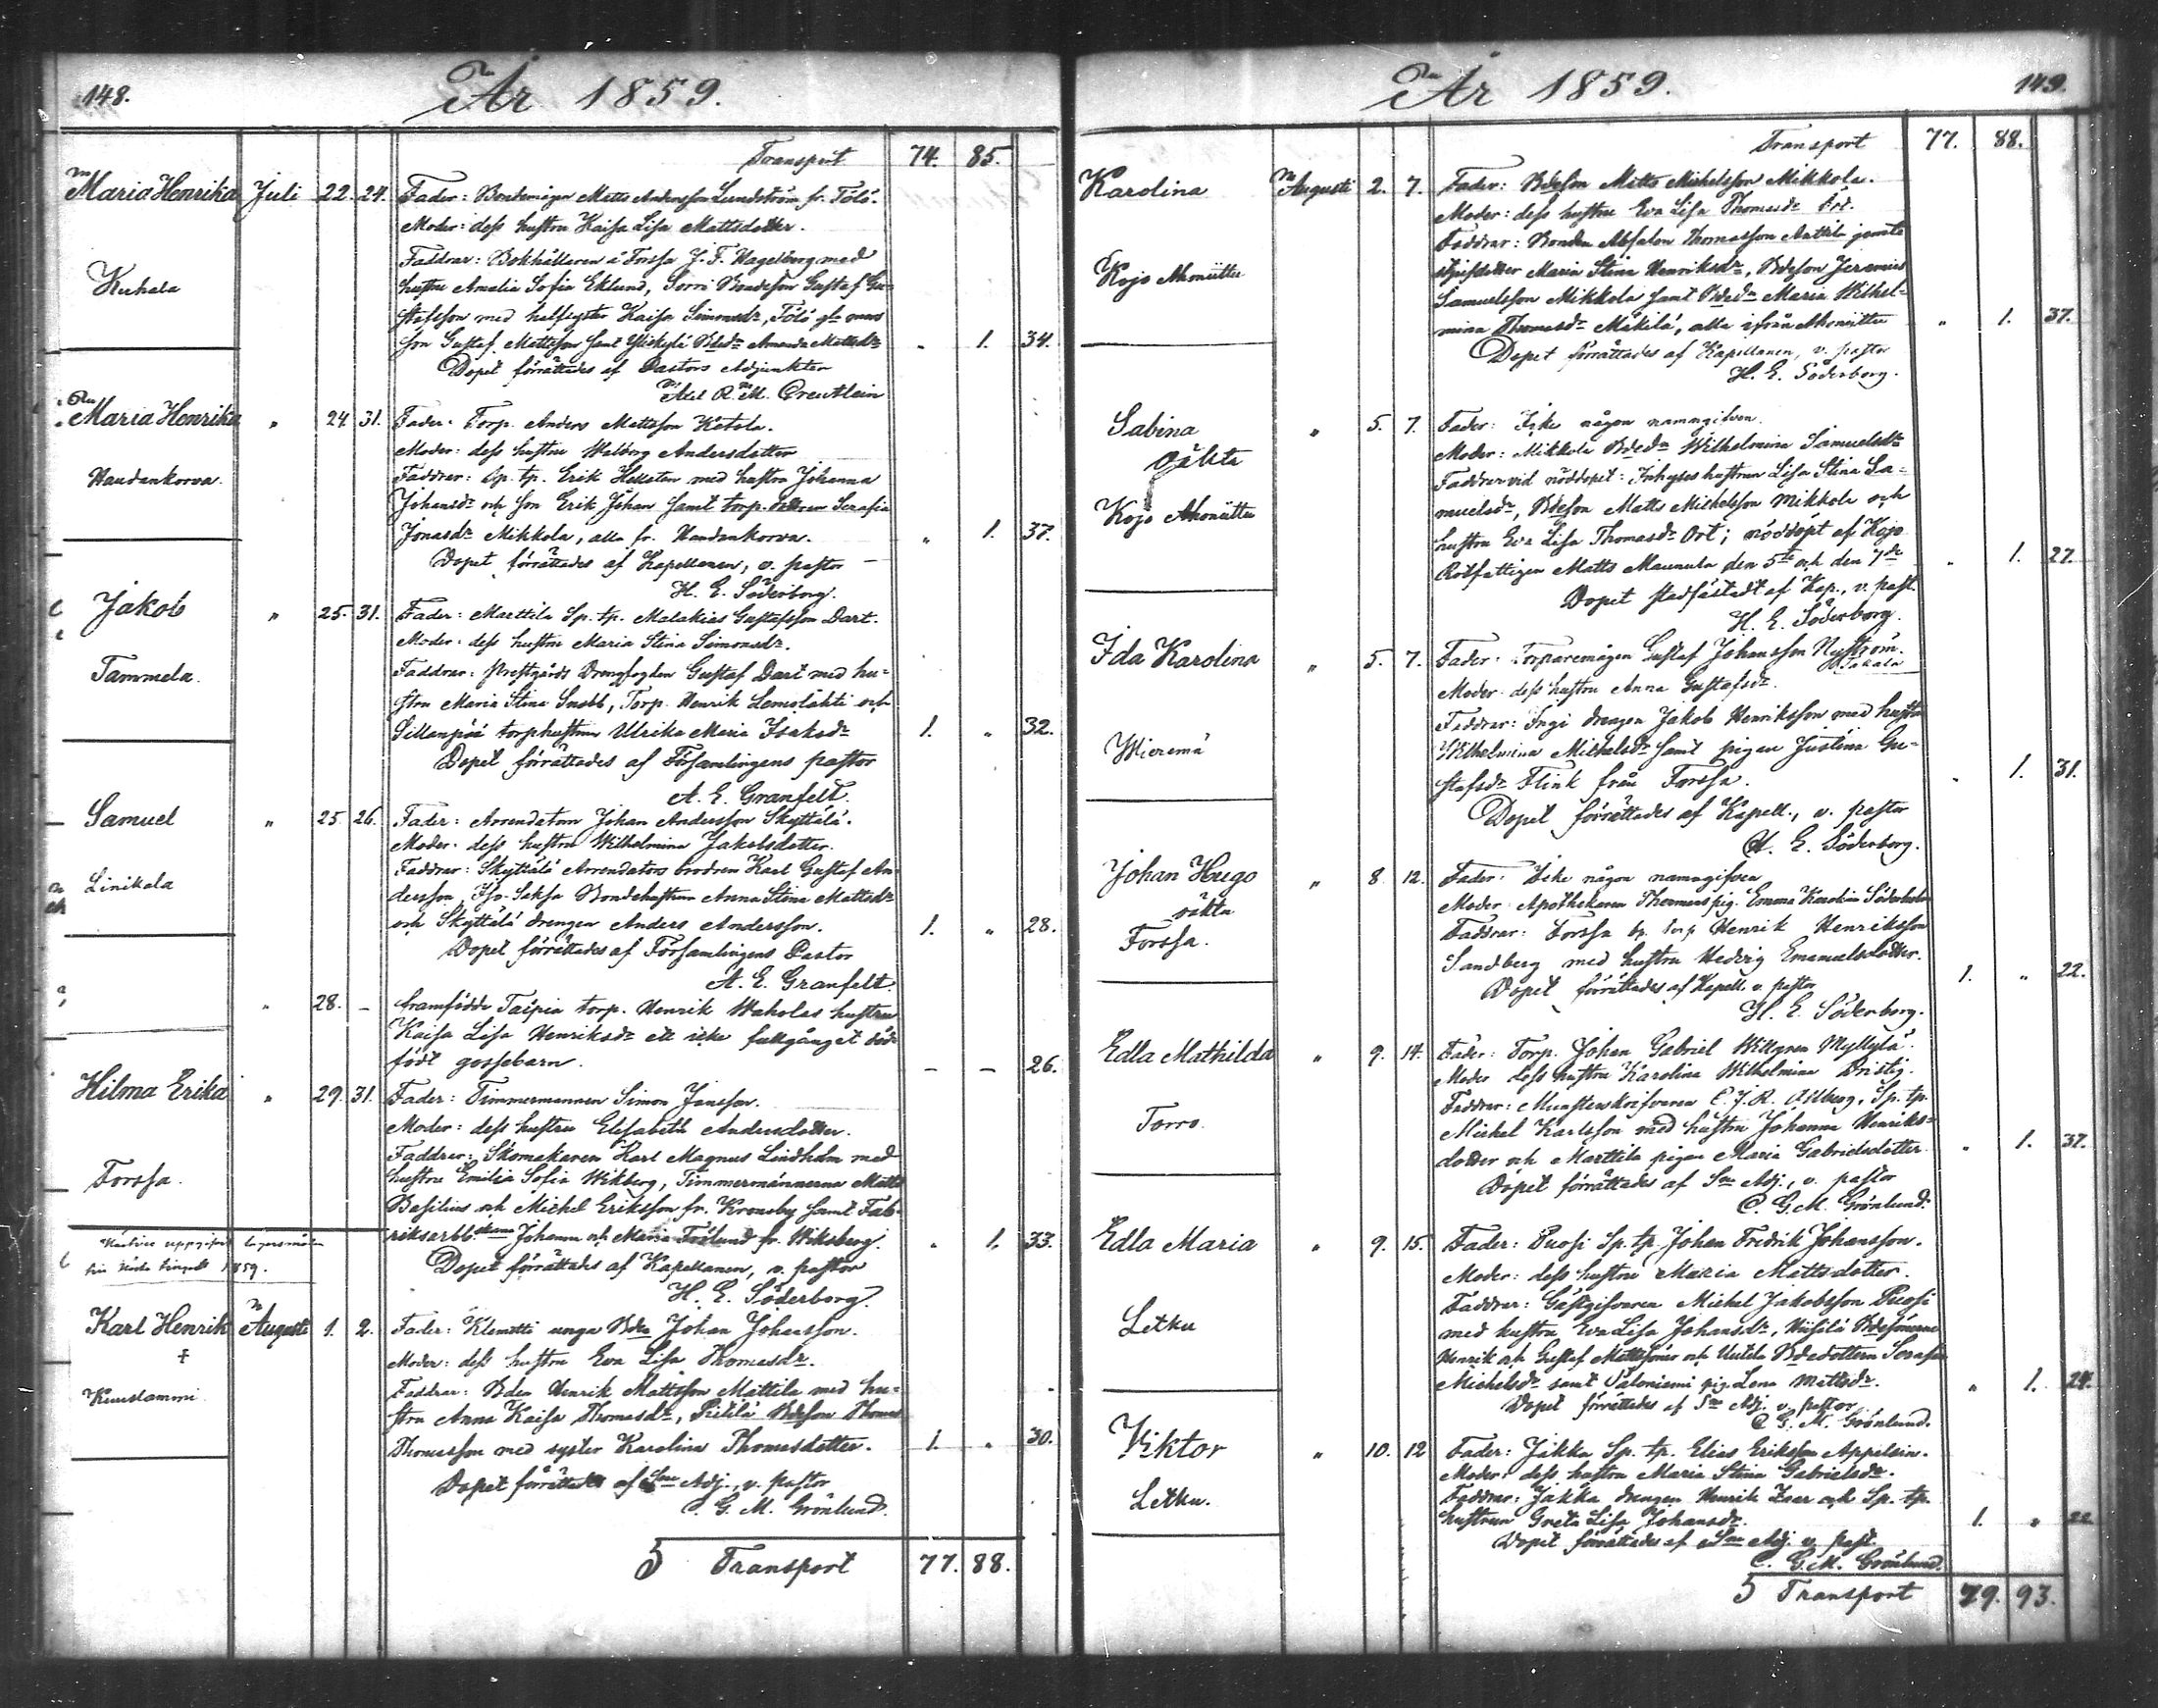 148.
År 1859.
Transport 74. 85.
Maria Henrika Juli 22. 24.
Kuhala
Fader: Bondemågen Matts Andersson Lundström fr. Tölö.
Moder: dess hustru Kaisa Lisa Mattsdotter.
Faddrar: Bokhållaren å Forssa J. F. Hagelberg med
hustru Amalia Sofia Eklund, Sorri Bondeson Gustaf Gu-
stafsson med halfsyster Kaisa Simonsdr, Tölö
son Gustaf Mattsson samt Bdedr Amanda Mattsdr „ 1. 34.
Dopet förrättades af Pastors Adjunkten
Axel R. M. Creutlein
Maria Henrika „ 24. 31.
Haudankorva.
Fader: Torp. Anders Mattsson Ketola.
Moder: dess hustru Walborg Andersdotter
Faddrar: Sp. tp. Erik Hellsten med hustru Johanna
Johansdr och son Erik Johan samt torp. dottren Serafia
Jonasdr Mikkola, alla fr. Haudankorva. „ 1. 37.
Dopet förrättades af Kapellanen, v. pastor
H. E. Söderborg.
Jakob „ 25. 31.
Tammela.
Fader: Marttila Sp. tp. Malakias Gustafsson Dart.
Moder: dess hustru Maria Stina Simonsdr.
Faddrar: Prestgårds Drengfogden Gustaf Dart med hu-
stru Maria Stina Snabb, Torp. Henrik Lemolahti och
Sillanpää torphustrun Ulrika Maria Isaksdr 1. „ 32.
Dopet förrättades af Församlingens pastor
A. E. Granfelt.
Samuel „ 25. 26.
Linikala
Fader: Arrendatorn Johan Andersson Skyttälä.
Moder: dess hustru Wilhelmina Jakobsdotter.
Faddrar: Skyttälä Arrendators brodren Karl Gustaf An-
dersson, Iso-Saksa Bondehustrun Anna Stina Mattsdr
och Skyttälä drengen Anders Andersson. 1. „ 28.
Dopet förrättades af Församlingens Pastor
A. E. Granfelt.
„ 28. –
framfödde Taipia torp. Henrik Waholas hustru
Kaisa Lisa Henriksdr ett icke fullgånget död-
födt gossebarn. – – 26.
Hilma Erika „ 29. 31.
Forssa.
Fader: Timmermannen Simon Jansson.
Moder: dess hustru Elisabeth Andersdotter.
Faddrar: Skomakaren Karl Magnus Lindholm med
hustru Emilia Sofia Wikberg, Timmermännerna Matts
Basilius och Michel Eriksson fr. Kronoby samt Fab-
riksarb. Johanna och Maria Frilund fr. Wiksberg. „ 1. 33.
Dopet förrättades af Kapellanen, v. pastor
H. E. Söderborg.
1859.
Karl Henrik Augusti 1. 2.
+
Kuuslammi
Fader: Klemetti unga Bden Johan Johansson.
Moder: dess hustru Eva Lisa Thomasdr.
Faddrar: Bden Henrik Mattsson Mattila med hu-
stru Anna Kaisa Thomasdr, Pietilä Bdeson Thomas
Thomasson med syster Karolina Thomasdotter. 1. „ 30.
Dopet förrättades af Sne Adj., v. pastor
C. G. M. Grönlund.
5 Transport 77. 88.
År 1859.
149.
Transport 77. 88.
Karolina Augusti 2. 7.
Kojo Ahoniittu
Fader: Bdeson Matts Michelsson Mikkola.
Moder: dess hustru Eva Lisa Thomasdr Ort.
Faddrar: Bonden Absalon Thomasson Anttila jemte
styfdotter Maria Stina Henriksdr, Bdeson Jeremias
Samuelsson Mikkola samt Bdedr Maria Wilhel-
mina Thomasdr Mäkilä, alla ifrån Ahoniittu „ 1. 37.
Dopet förrättades af Kapellanen, v. pastor
H. E. Söderborg.
Sabina „ 5. 7.
oäkta
Kojo Ahoniittu
Fader: Icke någon namngifven.
Moder: Mikkola Bdedr Wilhelmina Samuelsdr
Faddrar vid nöddopet: Inhyseshustrun Lisa Stina Sa-
muelsdr, Bdeson Matts Michelsson Mikkola och
hustru Eva Lisa Thomasdr Ort; nöddöpt af Kojo
Rotfattigen Matts Maunula den 5te och den 7de „ 1. 27.
Dopet stadfästadt af Kap., v. past.
H. E. Söderborg.
Ida Karolina „ 5. 7.
Wieremä
Fader: Torparemågen Gustaf Johansson Nyström.
Moder: dess hustru Anna Gustafsdr.
Faddrar: Ingi drengen Jakob Henriksson med hustru
Wilhelmina Michelsdr samt pigan Justina Gu-
stafsdr Flink från Forssa. „ 1. 31.
Dopet förrättades af Kapell., v. pastor
H. E. Söderborg.
Johan Hugo „ 8. 12.
oäkta
Forssa.
Fader: Icke någon namngifven
Moder: Apothekaren pig. Emma Karolina Söderholm
Faddrar: Forssa sp. torp Henrik Henriksson
Sandberg med hustru Hedvig Emanuelsdotter. 1. „ 22.
Dopet förrättades af Kapell. v. pastor
H. E. Söderborg.
Edla Mathilda „ 9. 14.
Torro.
Fader: Torp. Johan Gabriel Willgren Myllylä.
Moder: dess hustru Karolina Wilhelmina Dristig.
Faddrar: Munsterskrifvaren E. J. R. Ahlberg, Sp. tp.
Michel Karlsson med hustru Johanna Henriks-
dotter och Marttila pigan Maria Gabrielsdotter „ 1. 37.
Dopet förrättades af Sne Adj., v. pastor
C. G. M. Grönlund.
Edla Maria „ 9. 15.
Letku
Fader: Puosi Sp. tp. Johan Fredrik Johansson.
Moder: dess hustru Maria Mattsdotter.
Faddrar: Gästgifvaren Michel Jakobsson Puosi
med hustru Eva Lisa Johansdr, Bdesönerna
Henrik och Gustaf Mattssöner och Uutela Bdedottern Serafia
Michelsdr samt Saloniemi pig. Lena Mattsdr. „ 1. 24.
Dopet förrättades af Sne Adj. v. pastor
C. G. M. Grönlund.
Viktor „ 10. 12
Letku.
Fader: Jakka Sp. tp. Elias Eriksson Appelsin.
Moder: dess hustru Maria Stina Gabrielsdr.
Faddrar: Jakka drengen Henrik Zaar och Sp. tp.
hustrun Greta Lisa Johansdr. 1. „ 22
Dopet förrättades af Sne Adj. v. past.
C. G. M. Grönlund.
5 Transport 79. 93.